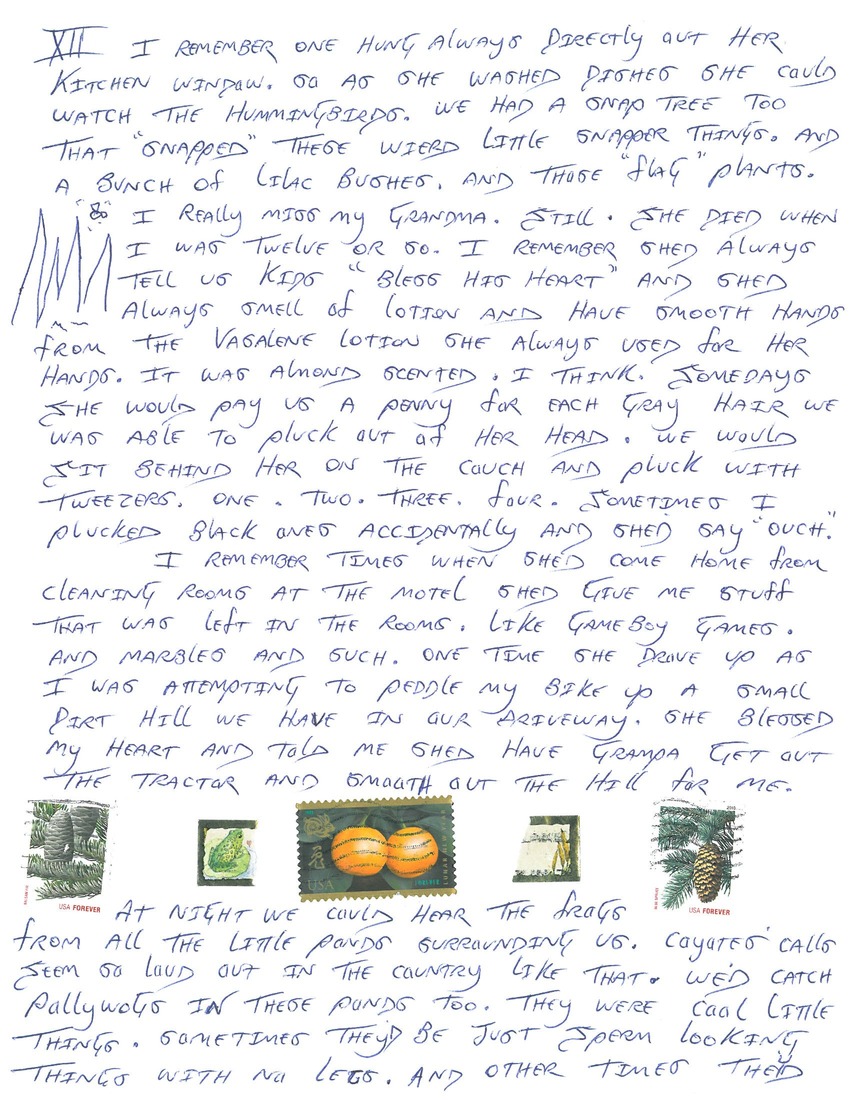 XII I REMEMBER ONE HUNG ALWAYS DIRECTLY OUT HER
KITCHEN WINDOW. SO AS SHE WASHED DISHES SHE COULD
WATCH THE HUMMINGBIRDS. WE HAD A SNAP TREE TOO
THAT "SNAPPED" THESE WIERD LITTLE SNAPPER THINGS. AND
A BUNCH OF LILAC BUSHES. AND THOSE "FLAG" PLANTS.
I REALLY MISS MY GRANDMA. STILL. SHE DIED WHEN
I WAS TWELVE OR SO. I REMEMBER SHED ALWAYS
TELL US KIDS "BLESS HIS HEART" AND SHED
ALWAYS SMELL OF LOTION AND HAVE SMOOTH HANDS
FROM THE VASALENE LOTION SHE ALWAYS USED FOR HER
HANDS. IT WAS ALMOND SCENTED. I THINK. SOMEDAYS
SHE WOULD PAY US A PENNY FOR EACH GRAY HAIR WE
WAS ABLE TO PLUCK OUT OF HER HEAD. WE WOULD
SIT BEHIND HER ON THE COUCH AND PLUCK WITH
TWEEZERS. ONE. TWO. THREE. FOUR. SOMETIMES I
PLUCKED BLACK ONES ACCIDENTALLY AND SHED SAY "OUCH."
I REMEMBER TIMES WHEN SHED COME HOME FROM
CLEANING ROOMS AT THE MOTEL SHED GIVE ME STUFF
THAT WAS LEFT IN THE ROOMS. LIKE GAMEBOY GAMES.
AND MARBLES AND SUCH. ONE TIME SHE DROVE UP AS
I WAS ATTEMPTING TO PEDDLE MY BIKE UP A SMALL
DIRT HILL WE HAVE IN OUR DRIVEWAY. SHE BLESSED
MY HEART AND TOLD ME SHED HAVE GRAMPA GET OUT
THE TRACTOR AND SMOOTH OUT THE HILL FOR ME.
USA FOREVER
USA FOREVER
USA FOREVER
AT NIGHT WE COULD HEAR THE FROGS
FROM ALL THE LITTLE PONDS SURROUNDING US. COYOTES' CALLS
SEEM SO LOUD OUT IN THE COUNTRY LIKE THAT. WE'D CATCH
POLLYWOGS IN THESE PONDS TOO. THEY WERE COOL LITTLE
THINGS. SOMETIMES THEY'D BE JUST SPERM LOOKING
THINGS WITH NO LEGS. AND OTHER TIMES THEY'D